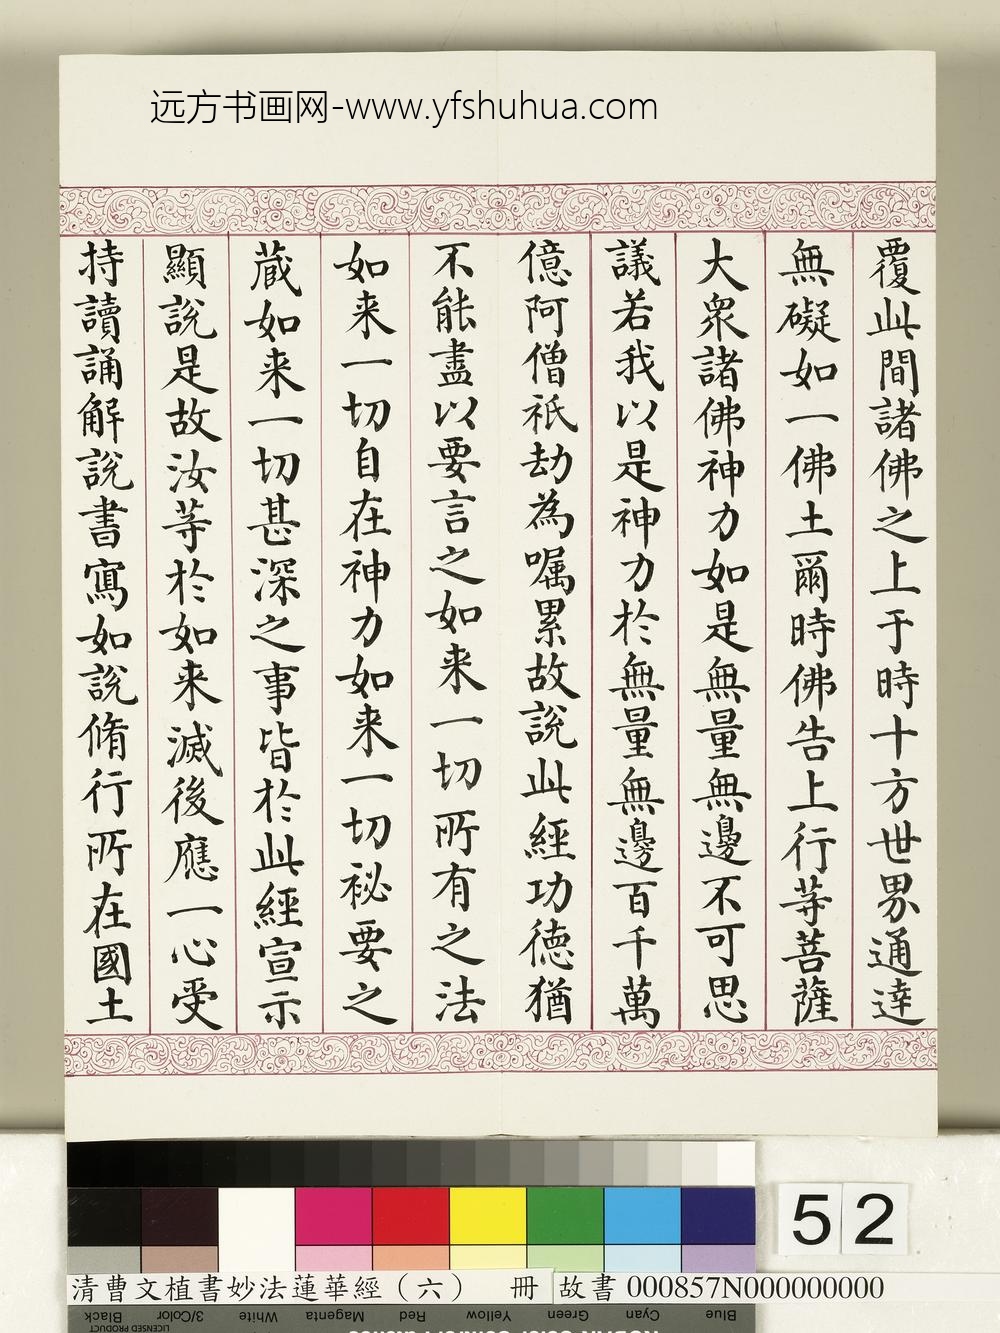 远方书画网-www.yfshuhua.com
覆此間諸佛之上于時十方世界通達
無礙如一佛土爾時佛告上行等菩薩
大衆諸佛神力如是無量無邊不可思
議若我以是神力於無量無邊百千萬
億阿僧祇劫為囑累故說此經功德猶
不能盡以要言之如来一切所有之法
如来一切自在神力如来一切祕要之
蔵如来一切甚深之事皆於此經宣示
顯說是故汝等於如来滅後應一心受
持讀誦解說書寫如說脩行所在國土
52
清曹文植書妙法蓮華經（六） 冊 故書 000857N000000000
Black 3/Color White Magenta Red Yellow Green Cyan Blue
LICENSED PRODUCT